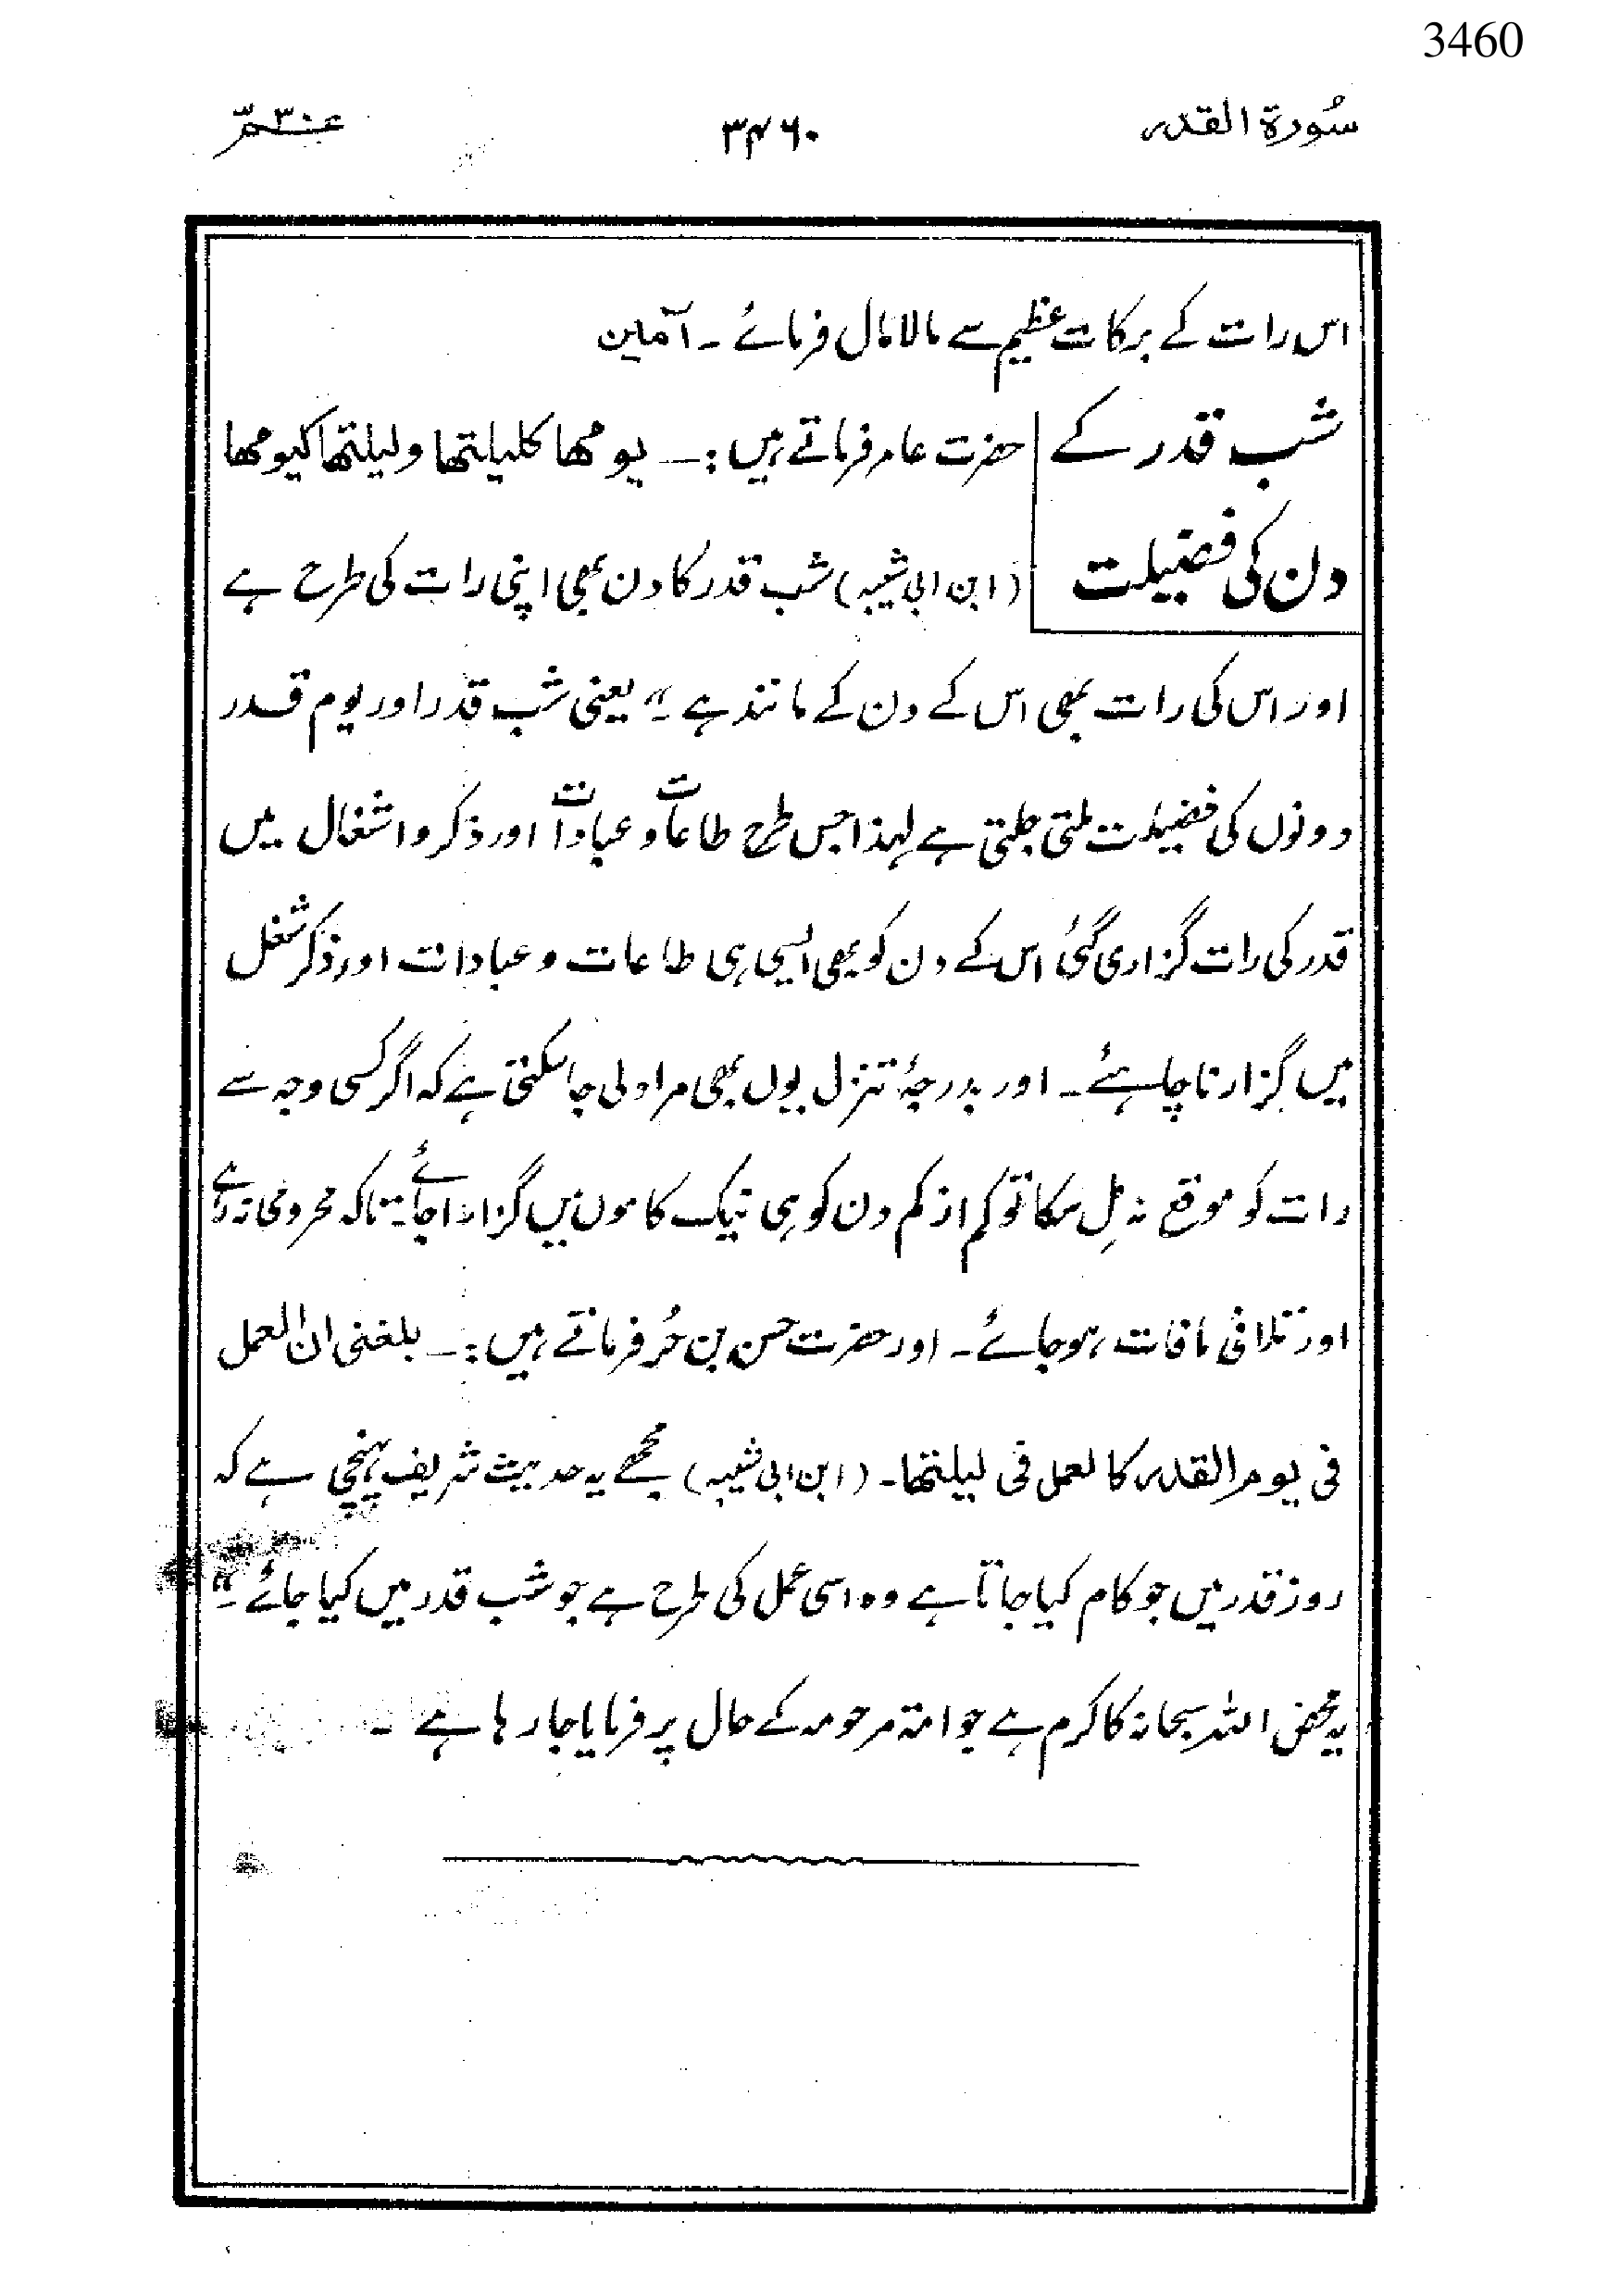 3460
سُورة القدر ۳۴۶۰ عم۳۰
اس رات کے برکات عظیم سے مالا مال فرمائے ۔ آمین
شب قدر کے حضرت عامر فرماتے ہیں :۔ یومھا کلیلتھا ولیلتھا کیومھا
دن کی فضیلت (ابن ابی شیبہ) شب قدر کا دن بھی اپنی رات کی طرح ہے
اور اس کی رات بھی اس کے دن کے مانند ہے ۔" یعنی شب قدر اور یوم قدر
دونوں کی فضیلت ملتی جلتی ہے لہذا جس طرح طاعات و عبادات اور ذکر و اشغال میں
قدر کی رات گزاری گئی اس کے دن کو بھی ایسی ہی طاعات و عبادات اور ذکر شغل
میں گزارنا چاہئے ۔ اور بدرجۂ تنزل یوں بھی مراد لی جا سکتی ہے کہ اگر کسی وجہ سے
رات کو موقع نہ مِل سکا تو کم از کم دن کو ہی نیک کاموں میں گزارا جائے۔ تاکہ محرومی نہ رہے
اور تلافی مافات ہو جائے ۔ اور حضرت حسن بن حُر فرماتے ہیں :۔ بلغنی ان العمل
فی یوم القدر کالعمل فی لیلتھا۔ (ابن ابی شیبہ) مجھے یہ حدیث شریف پہنچی ہے کہ
روز قدر میں جو کام کیا جاتا ہے وہ اسی عمل کی طرح ہے جو شب قدر میں کیا جائے ۔"
یہ محض اللہ سبحانہ کا کرم ہے جو امۃ مرحومہ کے حال پر فرمایا جا رہا ہے ۔